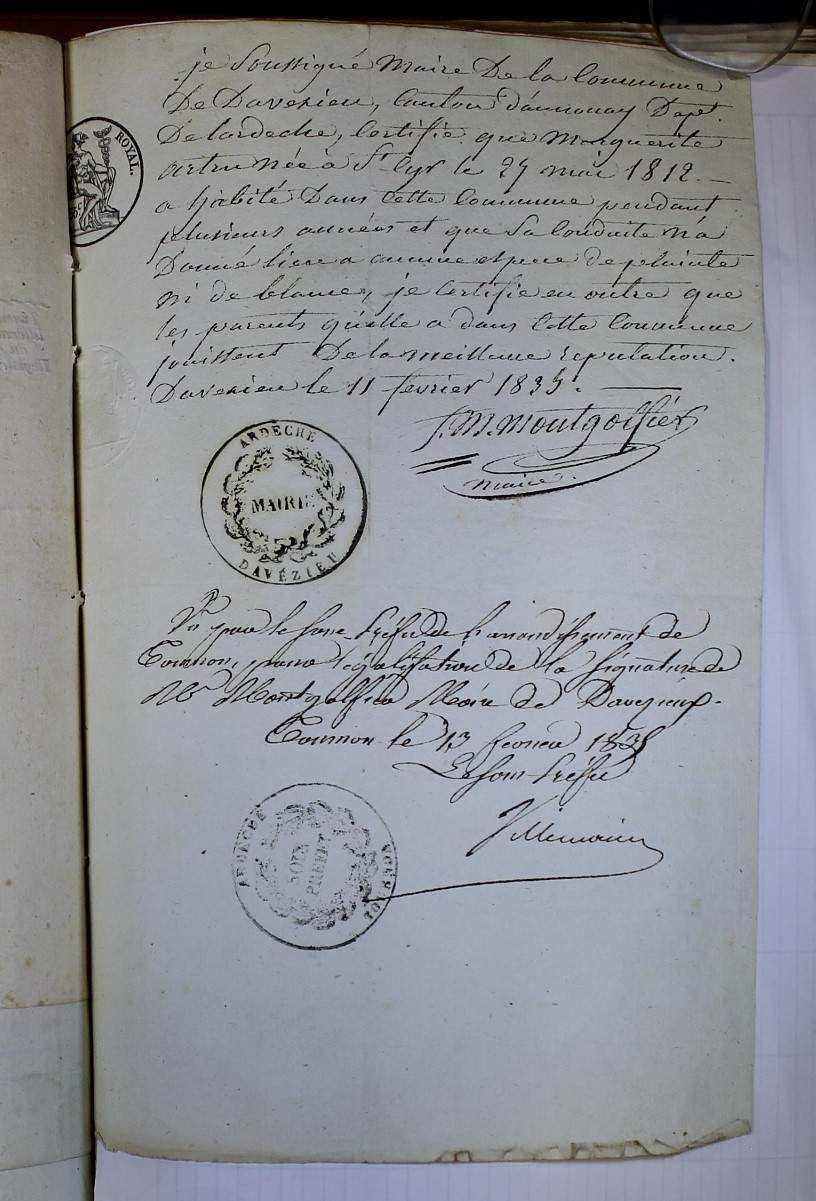 ROYAL.
je Soussigné Maire De la Commune
De Davezieu, Canton d'annonay Depet.
Delardeche, Certifie que Marguerite
née à St Cyr le 27 mai 1812. —
a habité Dans Cette Commune pendant
plusieurs années et que Sa Conduite n'a
Donné lieu a aucune espece de plainte
ni de blame, je Certifie en outre que
les parents qu'elle a dans Cette Commune
jouissent De la meilleure reputation.
Davezieu le 11 fevrier 1835. —
f. M. Montgolfier
maire.
ARDECHE
MAIRIE
DAVÉZIEU
Vu pour le Sous-Préfet de l'arrondissement de
Tournon, pour légalisation de la signature de
Mr Montgolfier Maire de Davezieux.
Tournon le 13 fevrier 1835
Le Sous-Préfet
ARDECHE
SOUS
PREFET
TOURNON